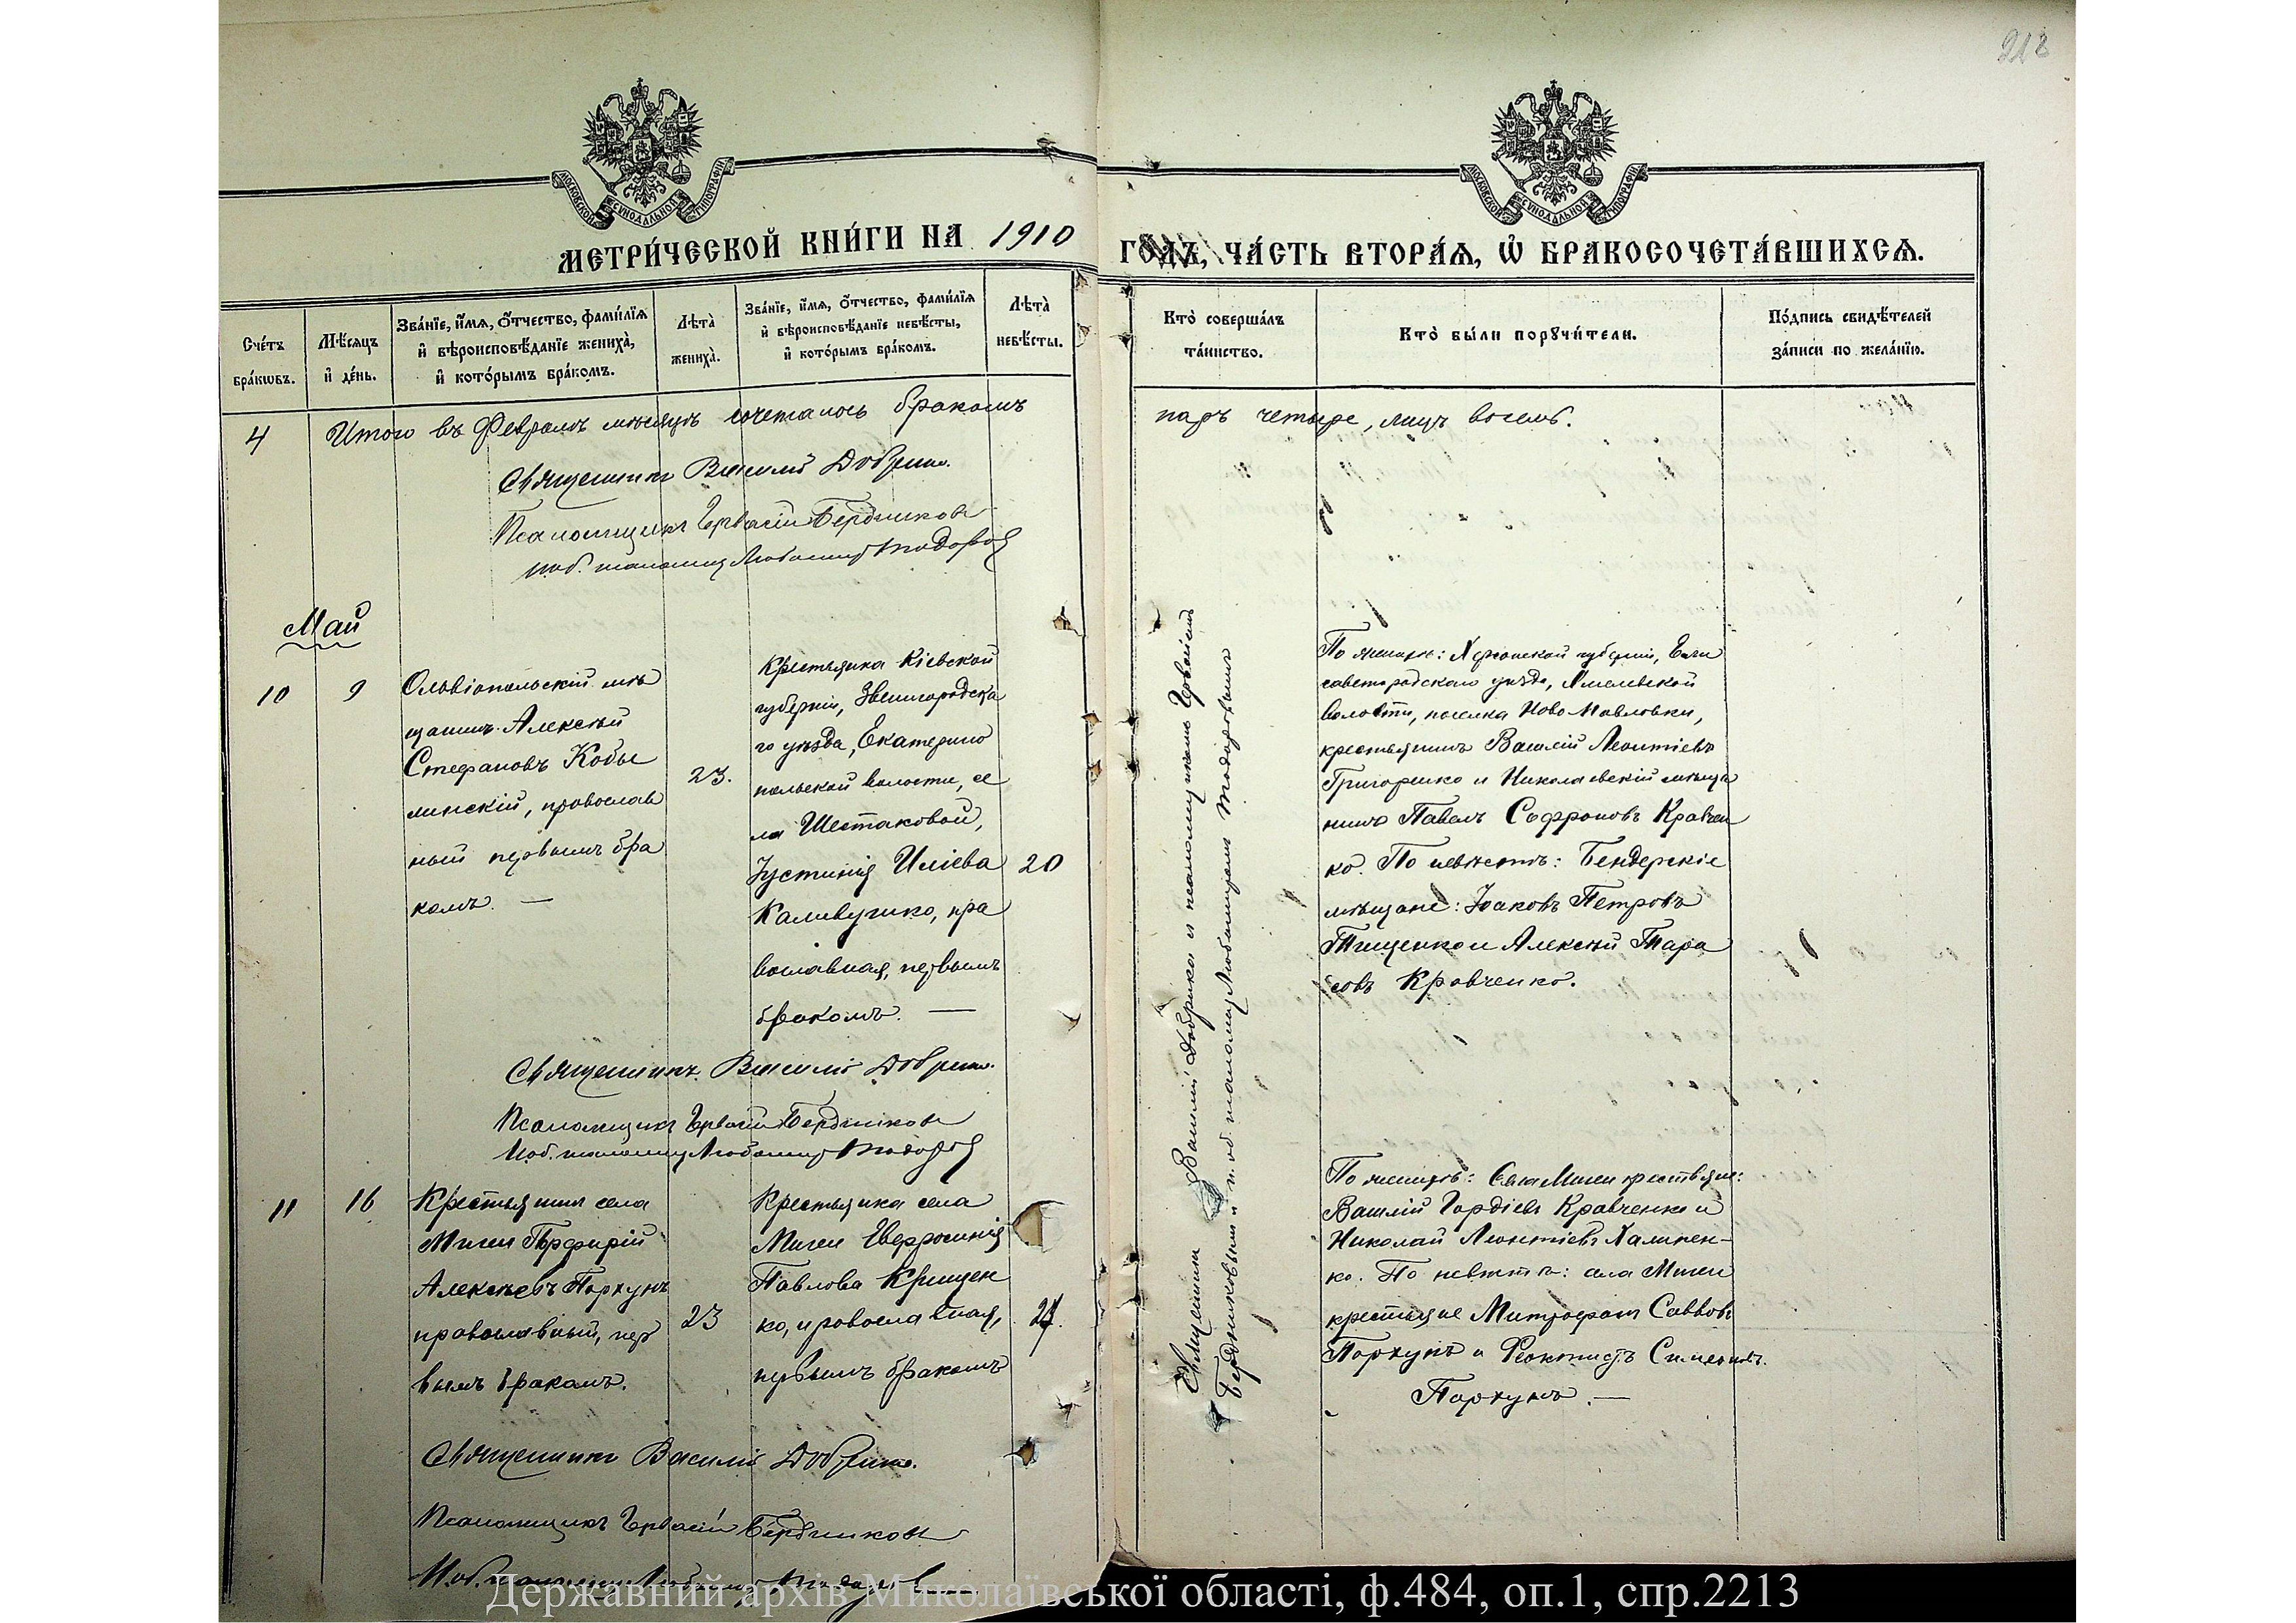 218
МОСКОВСКОЙ СѴНОДАЛЬНОЙ ТИПОГРАФІИ
МОСКОВСКОЙ СѴНОДАЛЬНОЙ ТИПОГРАФІИ
МЕТРИ́ЧЕСКОЙ КНИ́ГИ НА 1910 ГОДЪ, ЧА́СТЬ ВТОРА́Ѧ, Ѡ҆ БРАКОСОЧЕТА́ВШИХСѦ.
Сче́тъ бра́кѡвъ.
Мѣ́сѧцъ и҆ де́нь.
Зва́нїе, и҆́мѧ, ѻ҆́тчество, фами́лїѧ и҆ вѣроисповѣ́данїе жениха̀, и҆ кото́рымъ бра́комъ.
Лѣта̀ жениха̀.
Зва́нїе, и҆́мѧ, ѻ҆́тчество, фами́лїѧ и҆ вѣроисповѣ́данїе невѣ́сты, и҆ кото́рымъ бра́комъ.
Лѣта̀ невѣ́сты.
Кто̀ соверша́лъ та́инство.
Кто̀ бы́ли порꙋчи́тели.
По́дпись свидѣ́телей за́писи по жела́нїю.
4 Итого въ Февралѣ мѣсяцѣ сочеталось бракомъ паръ четыре, лицъ восемь.
Священникъ Василій Добрики
Псаломщикъ Гервасій Бердниковъ
И.об. псаломщ. Любомиръ Тодоровъ
Май
10 9
Ольвіопольскій мѣ
щанинъ Алексѣй
Стефановъ Кобы
линскій, православ
ный первымъ бра
комъ. —
23.
Крестьянка Кіевской
губерніи, Звенигородска
го уѣзда, Екатерино
польской волости, се
ла Шестаковой,
Іустинія Иліева
Каливушко, пра
вославная, первымъ
бракомъ. —
20
Священникъ Василій Добрика и псаломщикомъ Гервасіемъ
Бердниковымъ и и. об. псаломщ. Любомиромъ Тодоровымъ
По женихѣ: Херсонской губерніи, Ели
саветградскаго уѣзда,
волости, поселка Ново Павловки,
крестьянинъ Василій Леонтіевъ
Григоренко и Николаевскій мѣща
нинъ Павелъ Софроновъ Кравчен
ко. По невѣстѣ: Бендерскіе
мѣщане: Іоаковъ Петровъ
Тищенко и Алексѣй Тара
совъ Кравченко.
Священникъ Василій Добрики
Псаломщикъ Гервасій Бердниковъ
И.об. псаломщ. Любомиръ Тодоровъ
11 16
Крестьянинъ села
Мигеи Порфирій
Алексѣевъ Порхунъ
православный, пер
вымъ бракомъ.
23
Крестьянка села
Мигеи Евфросинія
Павлова Крищен
ко, православная,
первымъ бракомъ
21.
По женихѣ: Села Мигеи крестьяне:
Василій Гордіевъ Кравченко и
Николай Леонтіевъ Халипен-
ко. По невѣстѣ: села Мигеи
крестьяне Митрофанъ Саввовъ
Порхунъ и Феоктистъ Симеоновъ
Порхунъ. —
Священникъ Василій Добрики
Псаломщикъ Гервасій Бердниковъ
И.об. псаломщ. Любомиръ Тодоровъ
Державний архів Миколаївської області, ф.484, оп.1, спр.2213